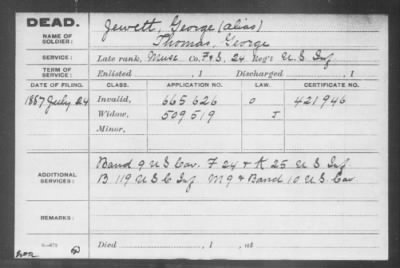 DEAD.
NAME OF SOLDIER:
Jewett, George (alias)
Thomas, George
SERVICE: Late rank, Musc Co. F & S, 24 Reg't U.S. Inf
TERM OF SERVICE: Enlisted , 1 Discharged , 1
DATE OF FILING. CLASS. APPLICATION NO. LAW. CERTIFICATE NO.
1887 July 24 Invalid, 665626 O 421946
Widow, 509519 J
Minor,
ADDITIONAL SERVICES:
Band 9 U S Cav. F 24 & K 25 U S Inf
B 119 U S C Inf M 9 & Band 10 U S Cav
REMARKS:
Died , 1 , at